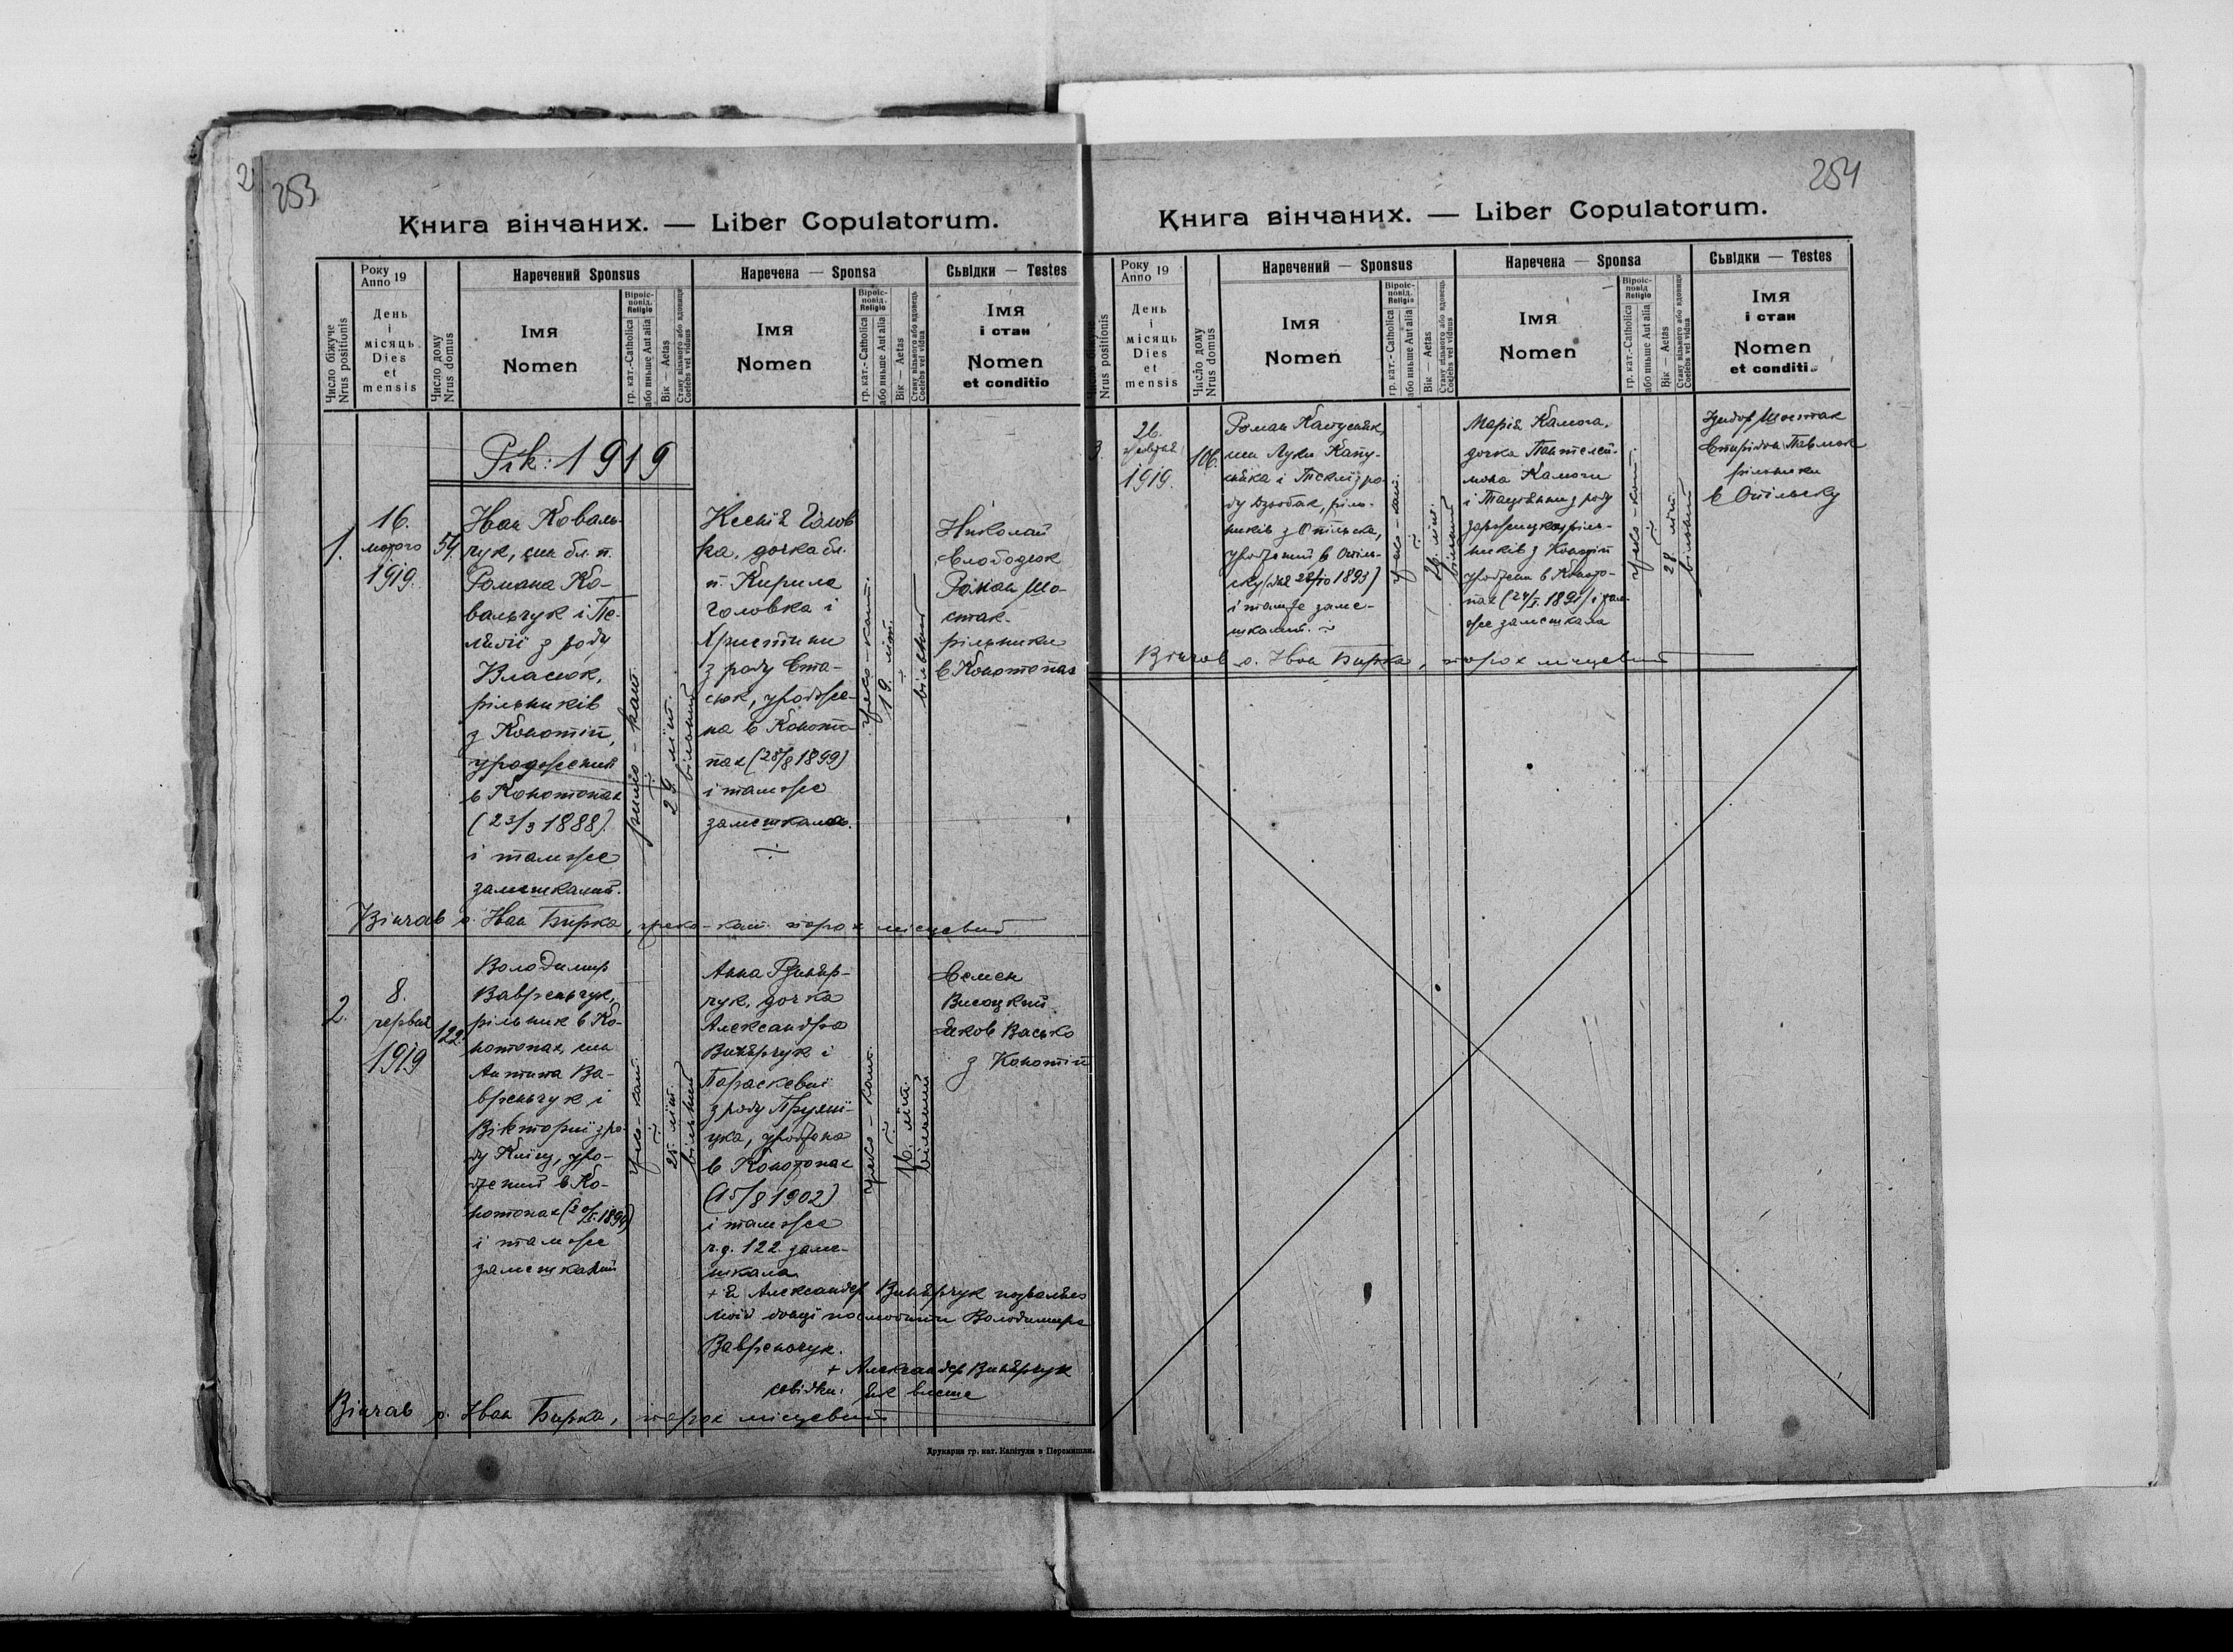 253
Книга вінчаних. — Liber Copulatorum.
Число біжуче
Nrus positionis
Року
Anno 19
День
і
місяць
Dies
et
mensis
Число дому
Nrus domus
Наречений Sponsus
Імя
Nomen
Віроіс-
повід.
Religio
гр. кат.-Catholica
або иньше Aut alia
Вік — Aetas
Стану вільного або вдовець
Coelebs vel viduus
Наречена — Sponsa
Імя
Nomen
Віроіс-
повід.
Religio
гр. кат.-Catholica
або иньше Aut alia
Вік — Aetas
Стану вільного або вдовець
Coelebs vel vidua
Сьвідки — Testes
Імя
і стан
Nomen
et conditio
Рік: 1919
1.
16.
лютого
1919.
54.
Иван Коваль-
чук, син бл. п.
Романа Ко-
вальчук і Пе-
з роду
Власюк,
рільників
з Конотіп,
уроджений
в Конотопах
(23/3 1888)
і тамже
замешкалий.
римо-кат.
29 літ.
вільний
Ксенія Голов
ка, дочка бл.
п. Кирила
Головка і
Христини
з роду Ста-
сюк, уродже-
на в Коното-
пах (28/8 1899)
і тамже
замешкала.
греко-кат.
19. літ.
вільний
Николай
Слободюк
Роман Шо-
стак
рільники
в Конотопах
Вінчав о. Иван Бирка, греко-кат. парох місцевий
2.
8.
червня
1919
122.
Володимир
Вавренчук,
рільник в Ко-
нотопах, син
Антипа Ва-
вренчук і
Вікториї з ро-
ду Кліщ, уро-
джений в Ко-
нотопах
і тамже
замешкалий
греко-кат.
25. літ.
вільний
Анна Виняр-
чук, дочка
Александра
Винярчук і
Параскевиї
з роду
уроджена
в Конотопах
(15/8 1902)
і тамже
ч. д. 122. заме-
шкала
греко-кат.
16. літ.
вільний
Семен
Висоцкий
Яков Васько
з Конотіп
+ Я Александер Винярчук позваляю
моїй доньці пошлюбити Володимира
Вавренчук.
+ Александер Винярчук
сьвідки: як висше
Вінчав о. Иван Бирка, парох місцевий
Друкарня гр. кат. Капітули в Перемишли.
254
Книга вінчаних. — Liber Copulatorum.
Число біжуче
Nrus positionis
Року
Anno 19
День
і
місяць
Dies
et
mensis
Число дому
Nrus domus
Наречений — Sponsus
Імя
Nomen
Віроіс-
повід.
Religio
гр. кат.-Catholica
або иньше Aut alia
Вік — Aetas
Стану вільного або вдовець
Coelebs vel viduus
Наречена — Sponsa
Імя
Nomen
Віроіс-
повід
Religio
гр. кат.-Catholica
або иньше Aut alia
Вік — Aetas
Стану вільного або вдовиця
Coelebs vel vidua
Сьвідки — Testes
Імя
і стан
Nomen
et conditio
3.
26.
жовтня
1919.
106.
Роман Капусняк,
син Луки Капу-
сняка і Теклї з ро-
ду Дзьобак, ріль-
ників з Опільска,
уроджений в Опіль-
ску (дня 28/10 1893)
і тамже заме-
шкалий.
греко-кат.
26. літ.
вільний
Марія Камога,
дочка Пантелей-
мона Камоги
і з роду
ріль-
ників з Конотіп
уроджена в Коното-
пах і там-
же замешкала
греко-кат.
28. літ.
вільний
Изидор Шостак
Спиридон Павлюк
рільники
в Опільску
Вінчав о. Иван Бирка, парох місцевий